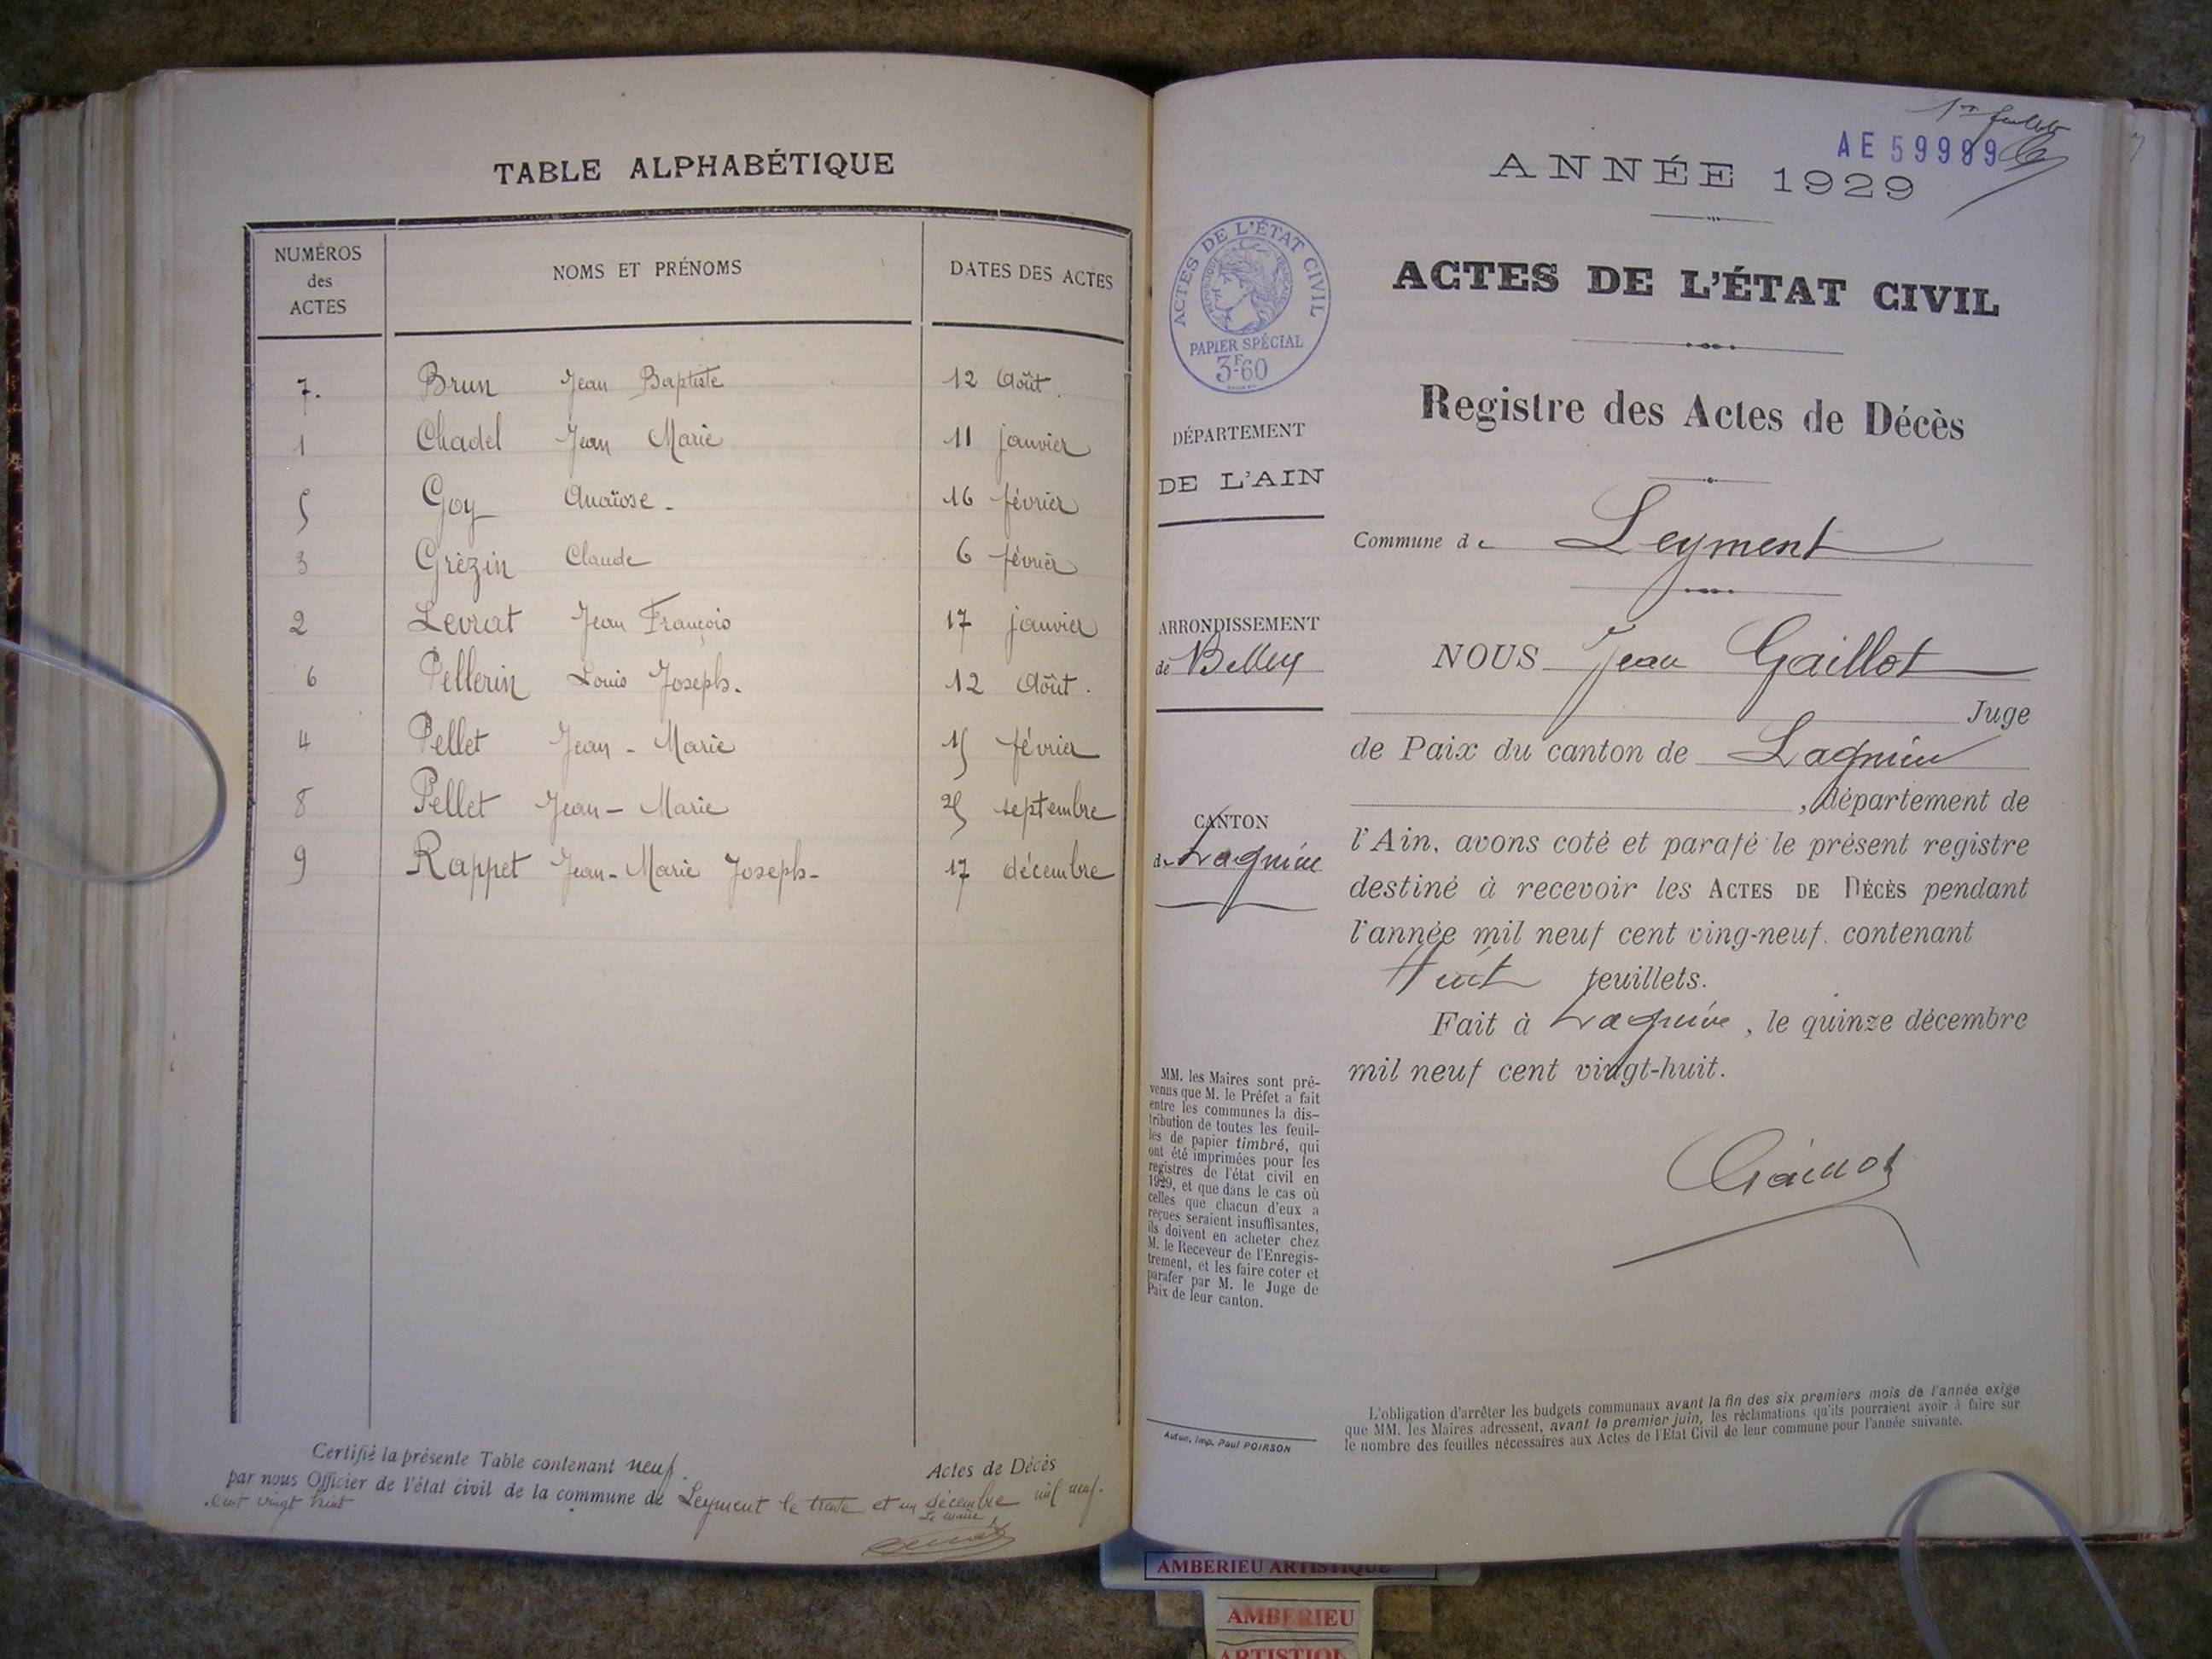 TABLE ALPHABÉTIQUE
NUMÉROS des ACTES
NOMS ET PRÉNOMS
DATES DES ACTES
7. Brun Jean Baptiste 12 Août.
1 Chadel Jean Marie 11 janvier
5 Goy 16 février
3 Grèzin Claude 6 février
2 Levrat Jean François 17 janvier
6 Pellerin Louis Joseph. 12 Août.
4 Pellet Jean-Marie 15 février
8 Pellet Jean-Marie 25 septembre
9 Rappet Jean-Marie Joseph- 17 décembre
Certifié la présente Table contenant neuf. Actes de Décès
par nous Officier de l'état civil de la commune de Leyment le trente et un décembre mil neuf.
cent vingt huit
Le maire
1er feuillet
AE 59989
ANNÉE 1929
ACTES DE L'ÉTAT CIVIL
RÉPUBLIQUE FRANÇAISE
PAPIER SPÉCIAL
3F60
ACTES DE L'ÉTAT CIVIL
Registre des Actes de Décès
DÉPARTEMENT
DE L'AIN
Commune de Leyment
ARRONDISSEMENT
de Belley
NOUS Jean Gaillot
Juge
de Paix du canton de Lagnieu
, département de
CANTON
de Lagnieu
l'Ain, avons coté et parafé le présent registre
destiné à recevoir les ACTES DE DÉCÈS pendant
l'année mil neuf cent ving-neuf. contenant
Huit feuillets.
Fait à Lagnieu, le quinze décembre
mil neuf cent vingt-huit.
Gaillot
MM. les Maires sont pré-
venus que M. le Préfet a fait
entre les communes la dis-
tribution de toutes les feuil-
les de papier timbré, qui
ont été imprimées pour les
registres de l'état civil en
1929, et que dans le cas où
celles que chacun d'eux a
reçues seraient insuffisantes,
ils doivent en acheter chez
M. le Receveur de l'Enregis-
trement, et les faire coter et
parafer par M. le Juge de
Paix de leur canton.
Autun, Imp. Paul POIRSON
L'obligation d'arrêter les budgets communaux avant la fin des six premiers mois de l'année exige
que MM. les Maires adressent, avant le premier juin, les réclamations qu'ils pourraient avoir à faire sur
le nombre des feuilles nécessaires aux Actes de l'Etat Civil de leur commune pour l'année suivante.
AMBERIEU ARTISTIQUE
AMBERIEU